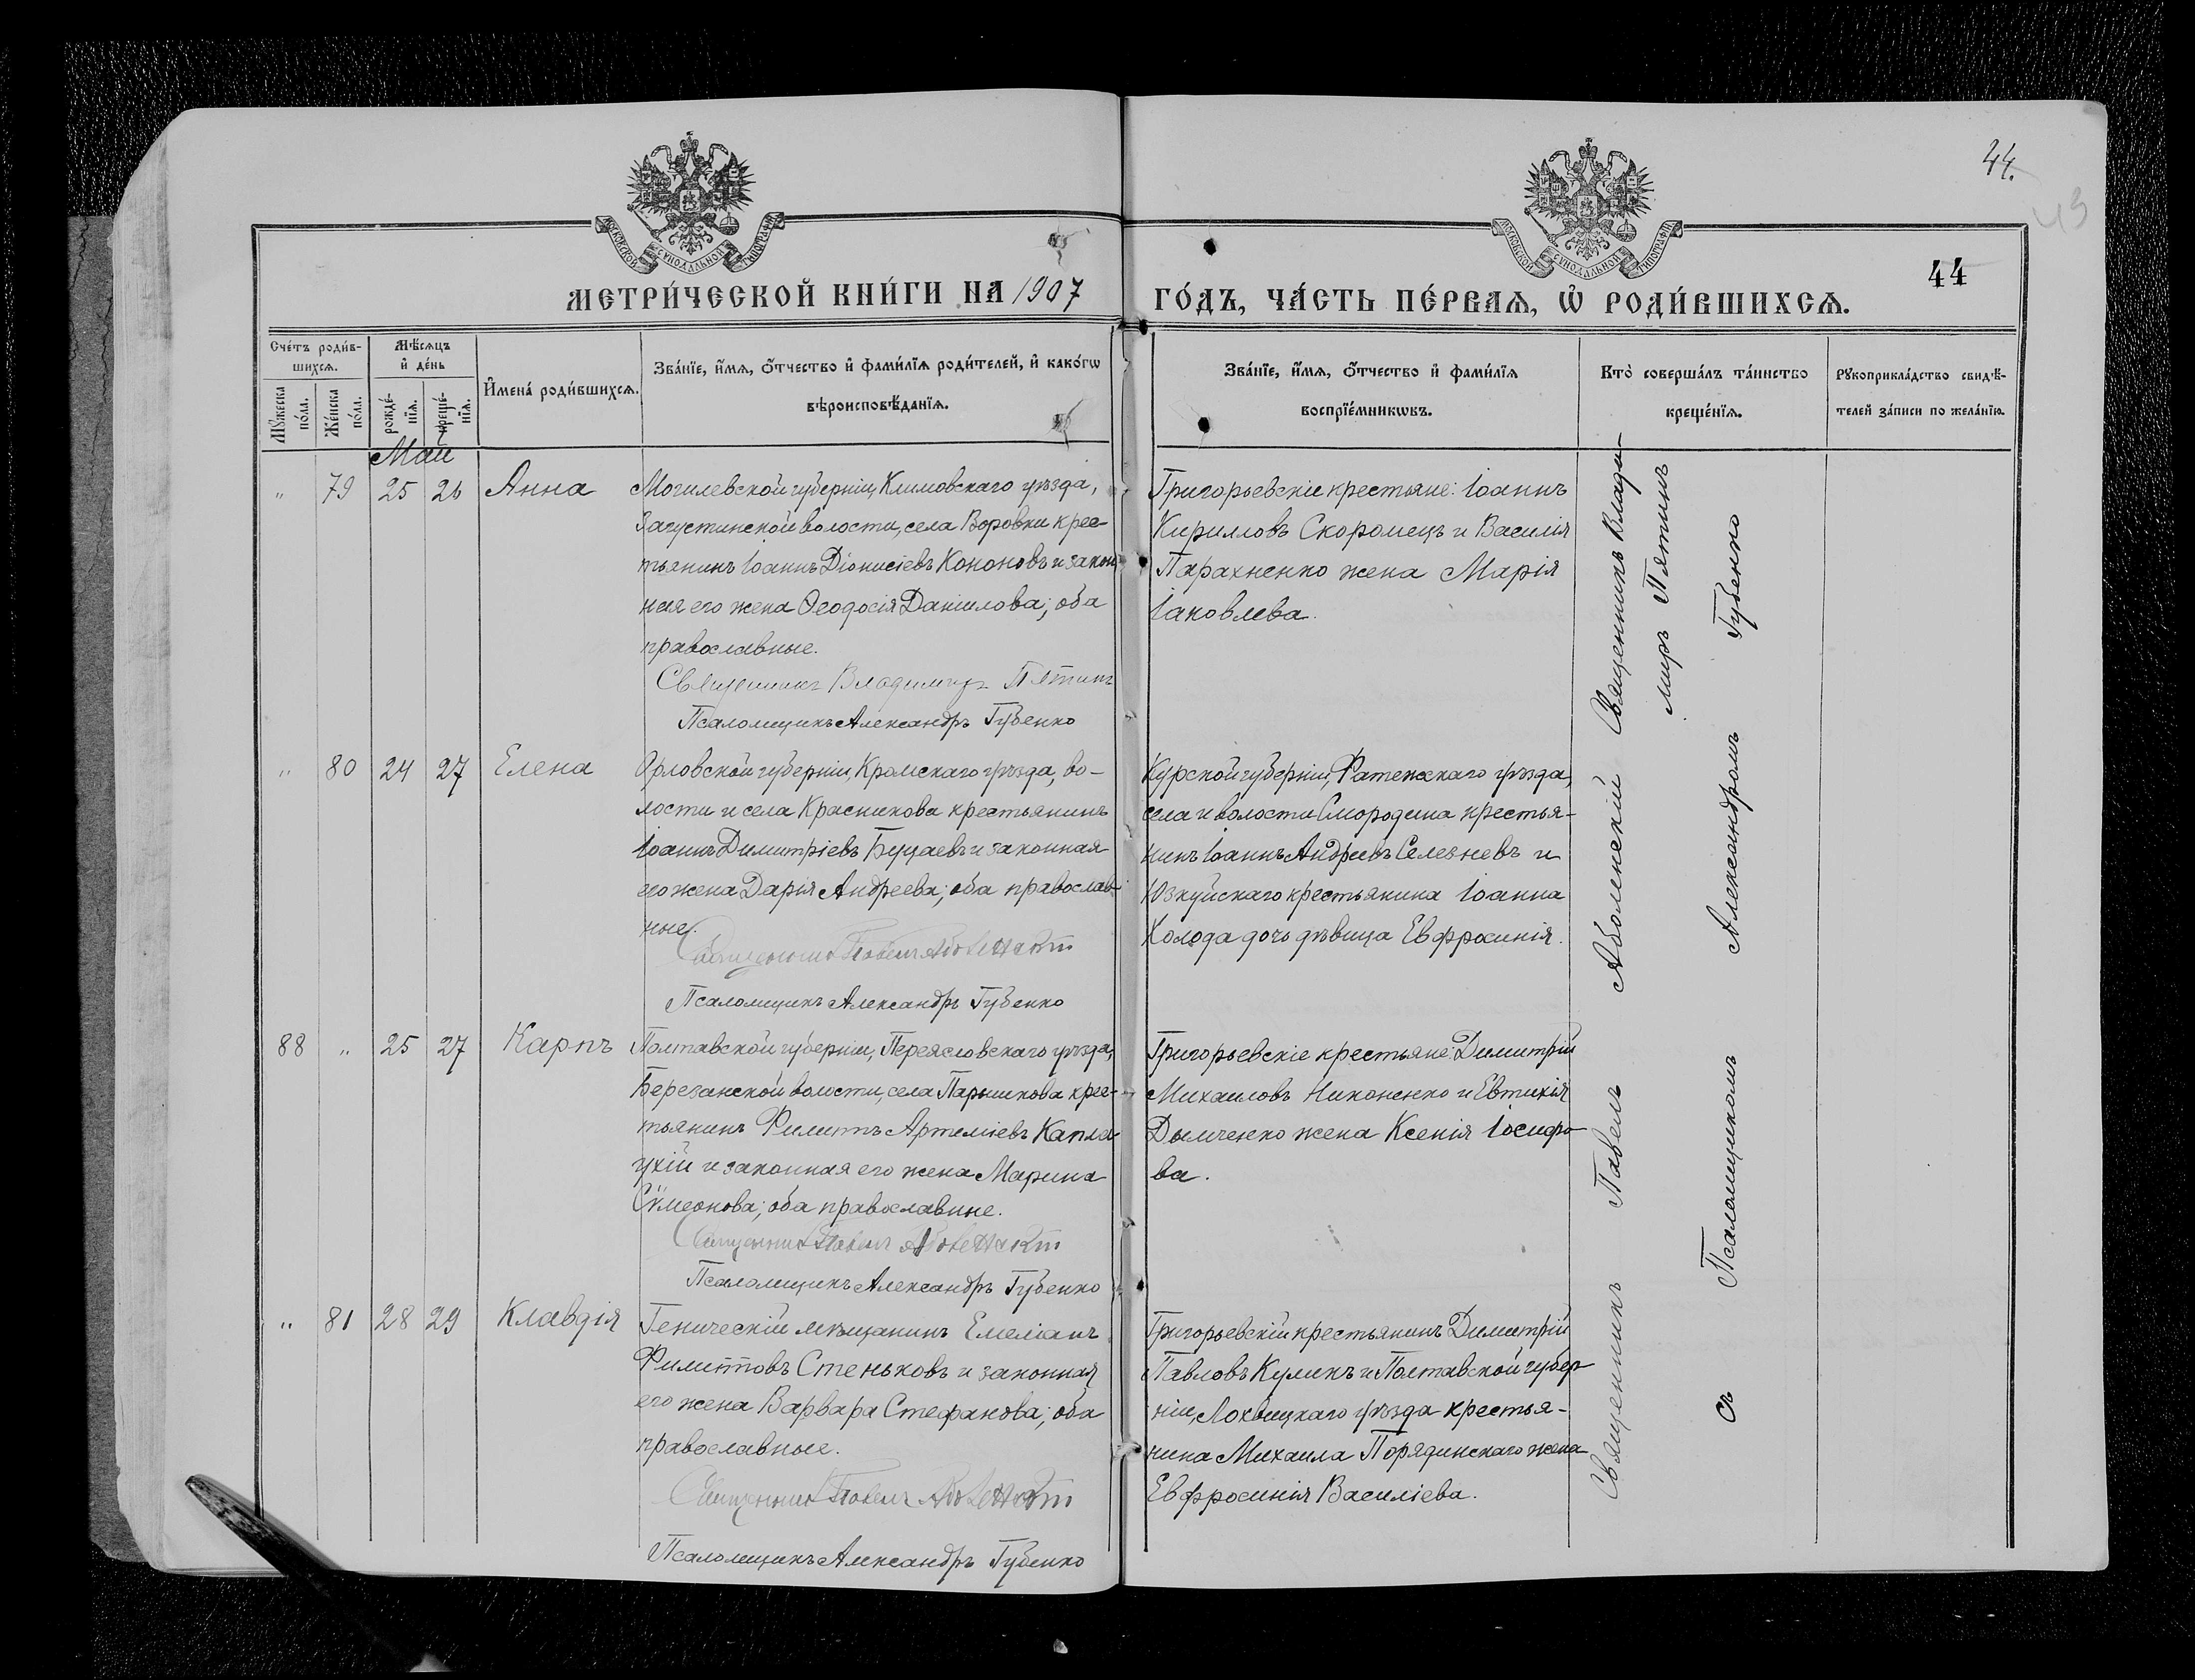 44.
МОСКОВСКОЙ СѴНОДАЛЬНОЙ ТИПОГРАФІИ
МОСКОВСКОЙ СѴНОДАЛЬНОЙ ТИПОГРАФІИ
44
МЕТРИ́ЧЕСКОЙ КНИ́ГИ НА 1907 ГО́ДЪ, ЧА́СТЬ ПЕ́РВАѦ, Ѡ҆ РОДИ́ВШИХСѦ.
Сче́тъ роди́в-
шихсѧ.
Мꙋ́жеска по́ла.
Же́нска по́ла.
Мѣ́сѧцъ
и҆ де́нь
рожде́-
нїѧ.
креще́-
нїѧ.
И҆мена̀ роди́вшихсѧ.
Зва́нїе, и҆́мѧ, ѻ҆́тчество и҆ фами́лїѧ роди́телей, и҆ како́гѡ
вѣроисповѣ́данїѧ.
Зва́нїе, и҆́мѧ, ѻ҆́тчество и҆ фами́лїѧ
воспрїе́мникѡвъ.
Кто̀ соверша́лъ та́инство
креще́нїѧ.
Рꙋкоприкла́дство свидѣ́-
телей за́писи по жела́нїю.
Май
" 79 25 26 Анна
Могилевской губерніи, Климовскаго уѣзда,
Загустинской волости, села Воровки крес-
тьянинъ Іоаннъ Діонисіевъ Кононовъ и закон
ная его жена Ѳеодосія Даніилова; оба
православные.
Священникъ Владимиръ Пятинъ
Псаломщикъ Александръ Губенко
Григорьевскіе крестьяне: Іоаннъ
Кирилловъ Скоромецъ и Василія
Парахненко жена Марія
Іаковлева.
" 80 24 27 Елена
Орловской губерніи, Кромскаго уѣзда, во-
лости и села Красникова крестьянинъ
Іоаннъ Димитріевъ и законная
его жена Дарія Андреева; оба православ-
ные.
Священникъ Павелъ Аболенскій
Псаломщикъ Александръ Губенко
Курской губерніи, Фатежскаго уѣзда,
села и волости Смородина крестья-
нинъ Іоаннъ Андреевъ Селезневъ и
Юзкуйскаго крестьянина Іоанна
Холода дочь дѣвица Евфросинія.
88 " 25 27 Карпъ
Полтавской губерніи, Переясловскаго уѣзда,
Березанской волости, села Парышкова крес-
тьянинъ Филиппъ Артеміевъ Капла-
ухій и законная его жена Марина
Сѵмеонова; оба православные.
Священникъ Павелъ Аболенскій
Псаломщикъ Александръ Губенко
Григорьевскіе крестьяне: Димитрій
Михаиловъ Никоненко и Евтихія
Дымченко жена Ксенія Іосифо-
ва.
" 81 28 29 Клавдія
Геническій мѣщанинъ Емеліанъ
Филипповъ Стеньковъ и законная
его жена Варвара Стефанова; оба
православные.
Священникъ Павелъ Аболенскій
Псаломщикъ Александръ Губенко
Григорьевскій крестьянинъ Димитрій
Павловъ Куликъ и Полтавской губер-
ніи, Лохвицкаго уѣзда крестья-
нина Михаила Порядинскаго жена
Евфросинія Василіева.
Священникъ Павелъ Аболенскій Священникъ Влади-
миръ Пятинъ
съ Псаломщикомъ Александромъ Губенко